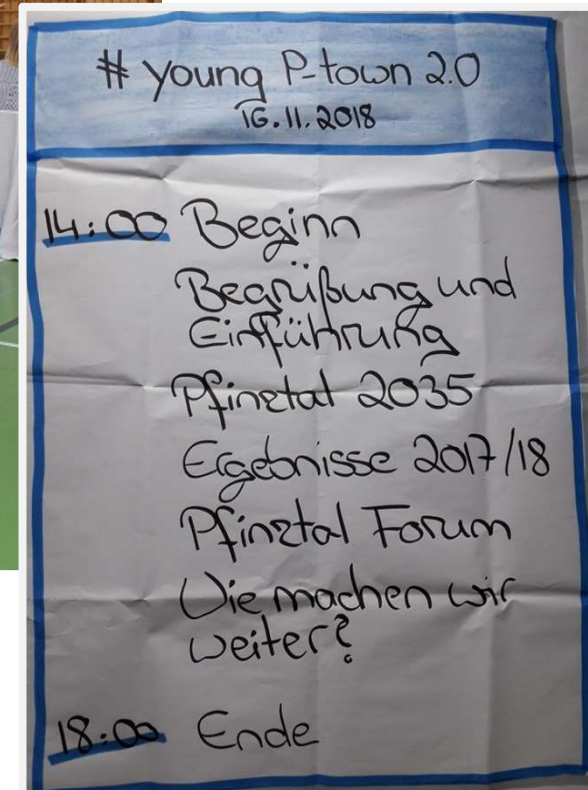 # young P-town 2.0
16.11.2018
14:00 Beginn
Begrüßung und
Einführung
Pfinztal 2035
Ergebnisse 2017/18
Pfinztal Forum
Wie machen wir
weiter?
18:00 Ende